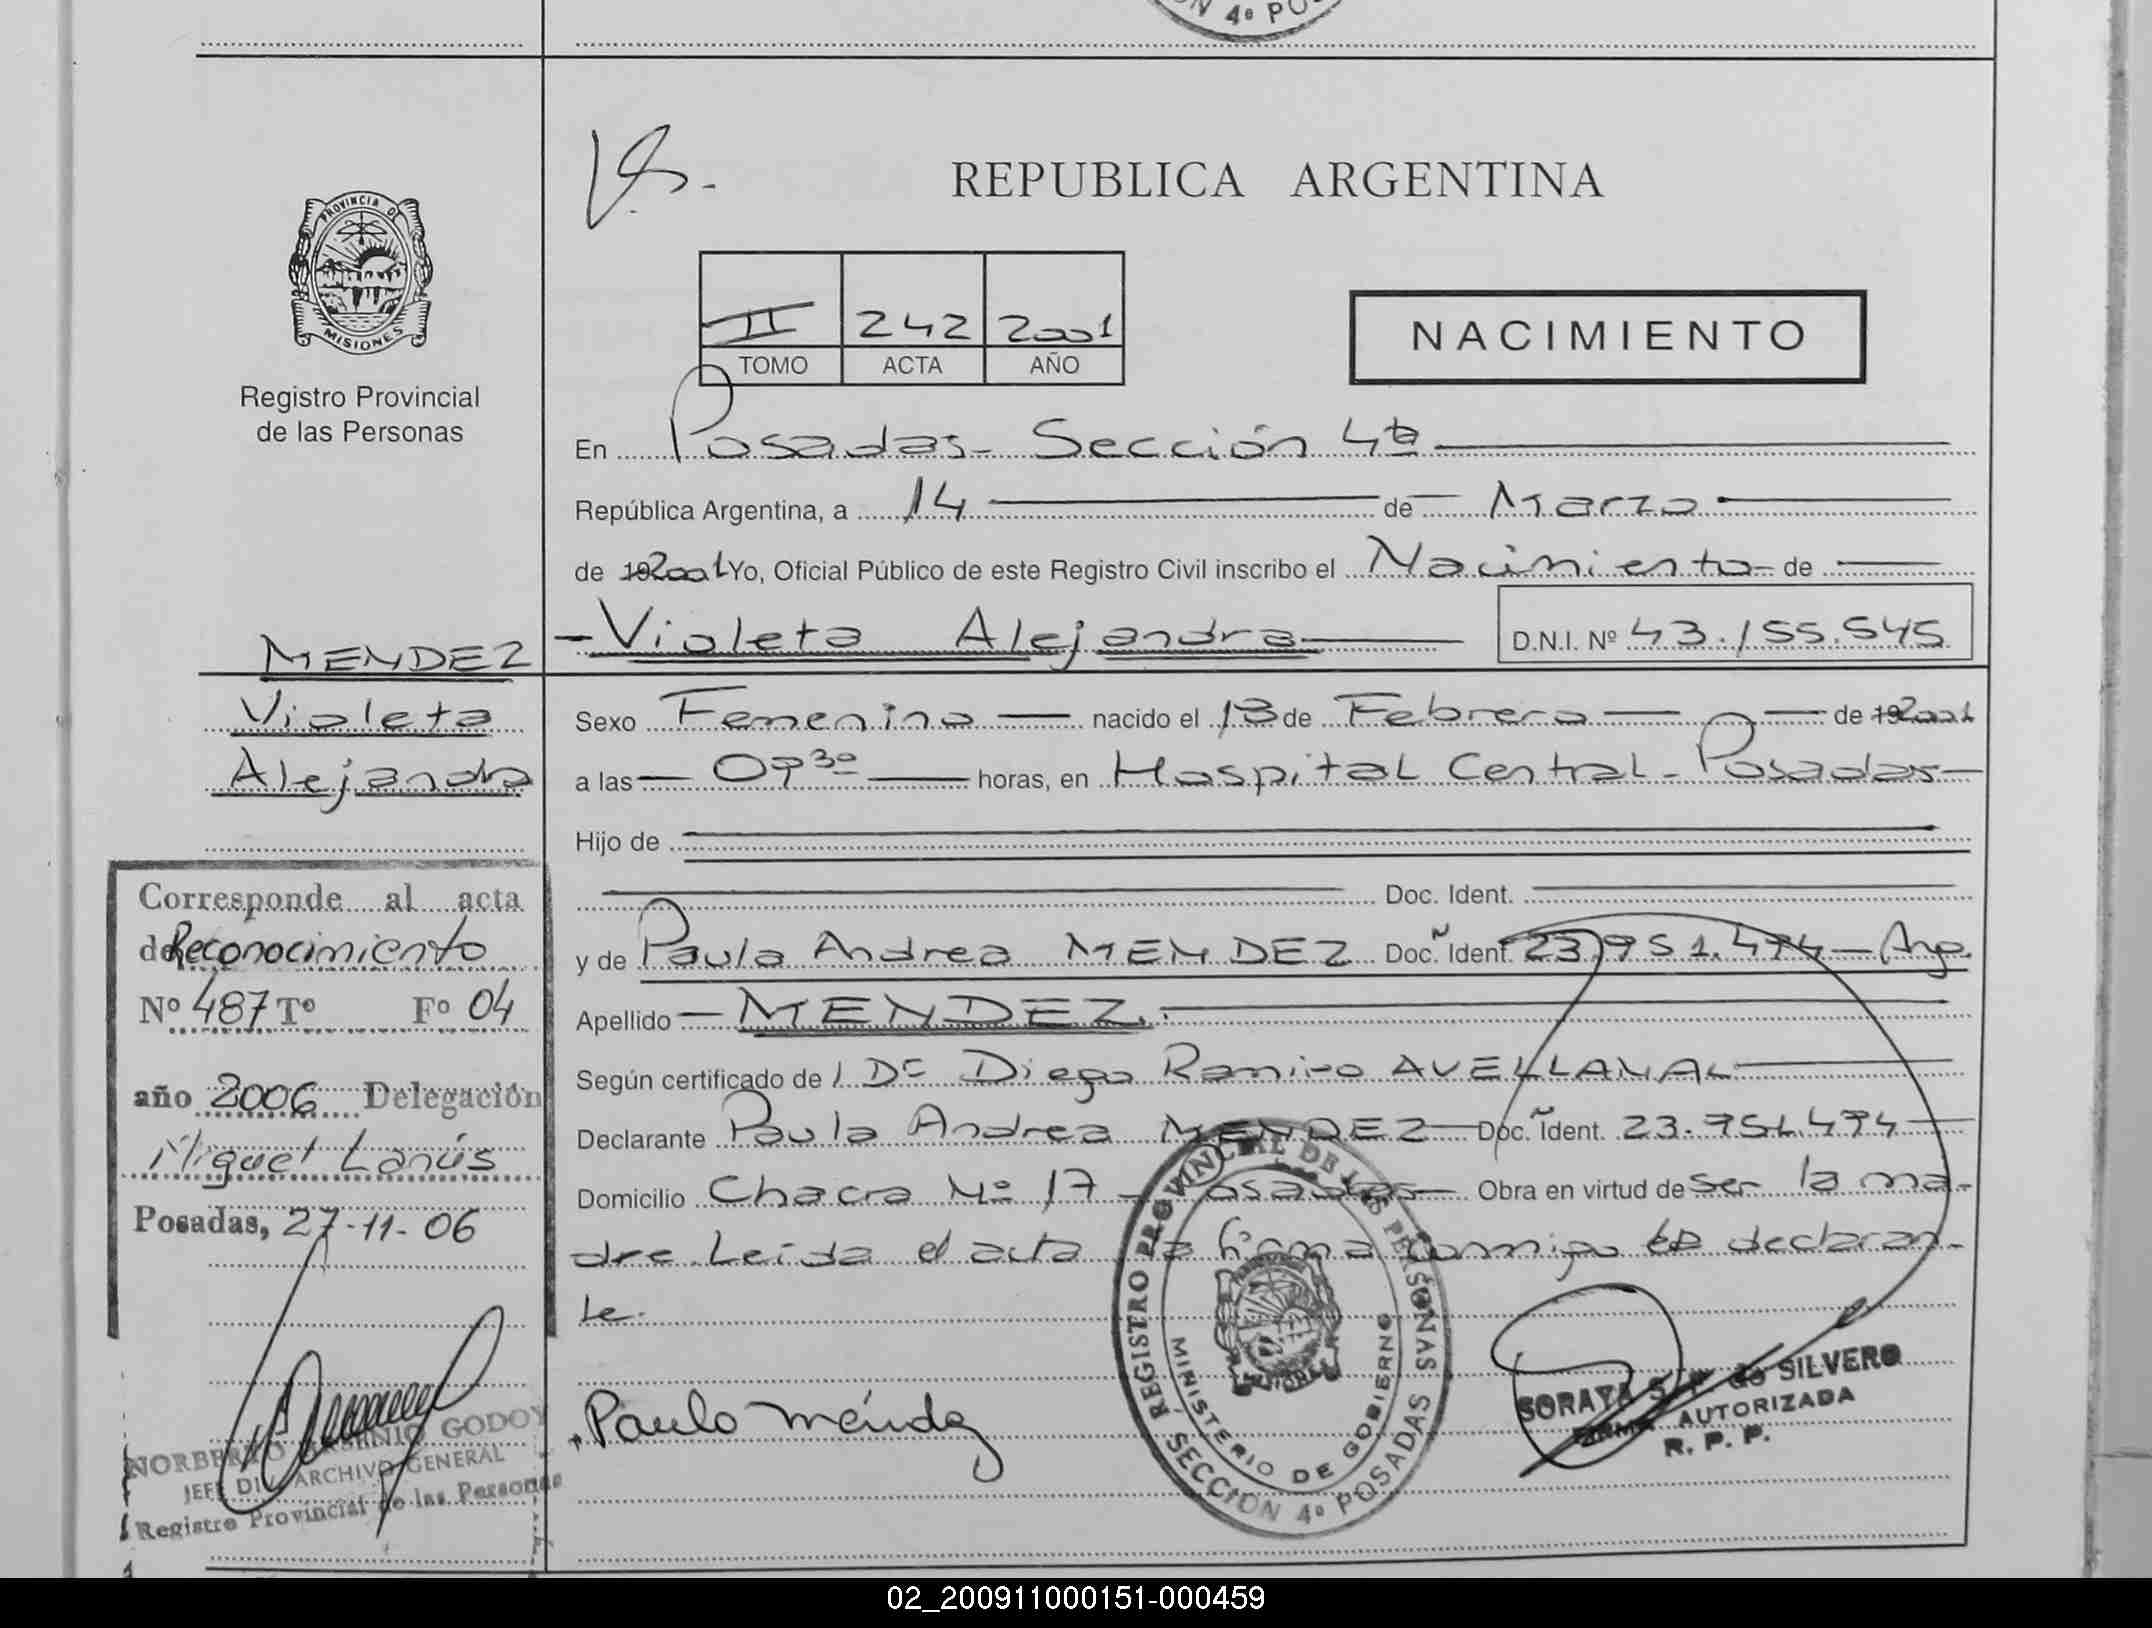 N 4º POS
PROVINCIA DE
MISIONES
Registro Provincial
de las Personas
REPUBLICA ARGENTINA
II 242 2001
TOMO ACTA AÑO
NACIMIENTO
En Posadas - Sección 4ta
República Argentina, a 14 de Marzo
de 192001 Yo, Oficial Público de este Registro Civil inscribo el Nacimiento de
Violeta Alejandra D.N.I. Nº 43.155.545
MENDEZ
Violeta
Alejandra
Sexo Femenino nacido el 13 de Febrero de 192001
a las 09 30 horas, en Hospital Central - Posadas
Hijo de
Doc. Ident.
y de Paula Andrea MENDEZ Doc. Ident. 23.951.494 - Arg.
Apellido MENDEZ.
Según certificado de / Dr Diego Ramiro AVELLANAL
Declarante Paula Andrea MENDEZ Doc. Ident. 23.951.494
Domicilio Chacra Nº 17 - Posadas Obra en virtud de ser la ma-
dre. Leída el acta la firma conmigo la declaran-
te.
Corresponde al acta
de Reconocimiento
Nº 487 Tº Fº 04
año 2006 Delegación
Miguel Lanús
Posadas, 27-11-06
NORBERTO ARSENIO GODOY
JEFE DIV. ARCHIVO GENERAL
Registro Provincial de las Personas
Paula Méndez
REGISTRO PROVINCIAL DE LAS PERSONAS
MINISTERIO DE GOBIERNO
SECCION 4º POSADAS
SORAYA de SILVERO
FIRMA AUTORIZADA
R. P. P.
02_200911000151-000459